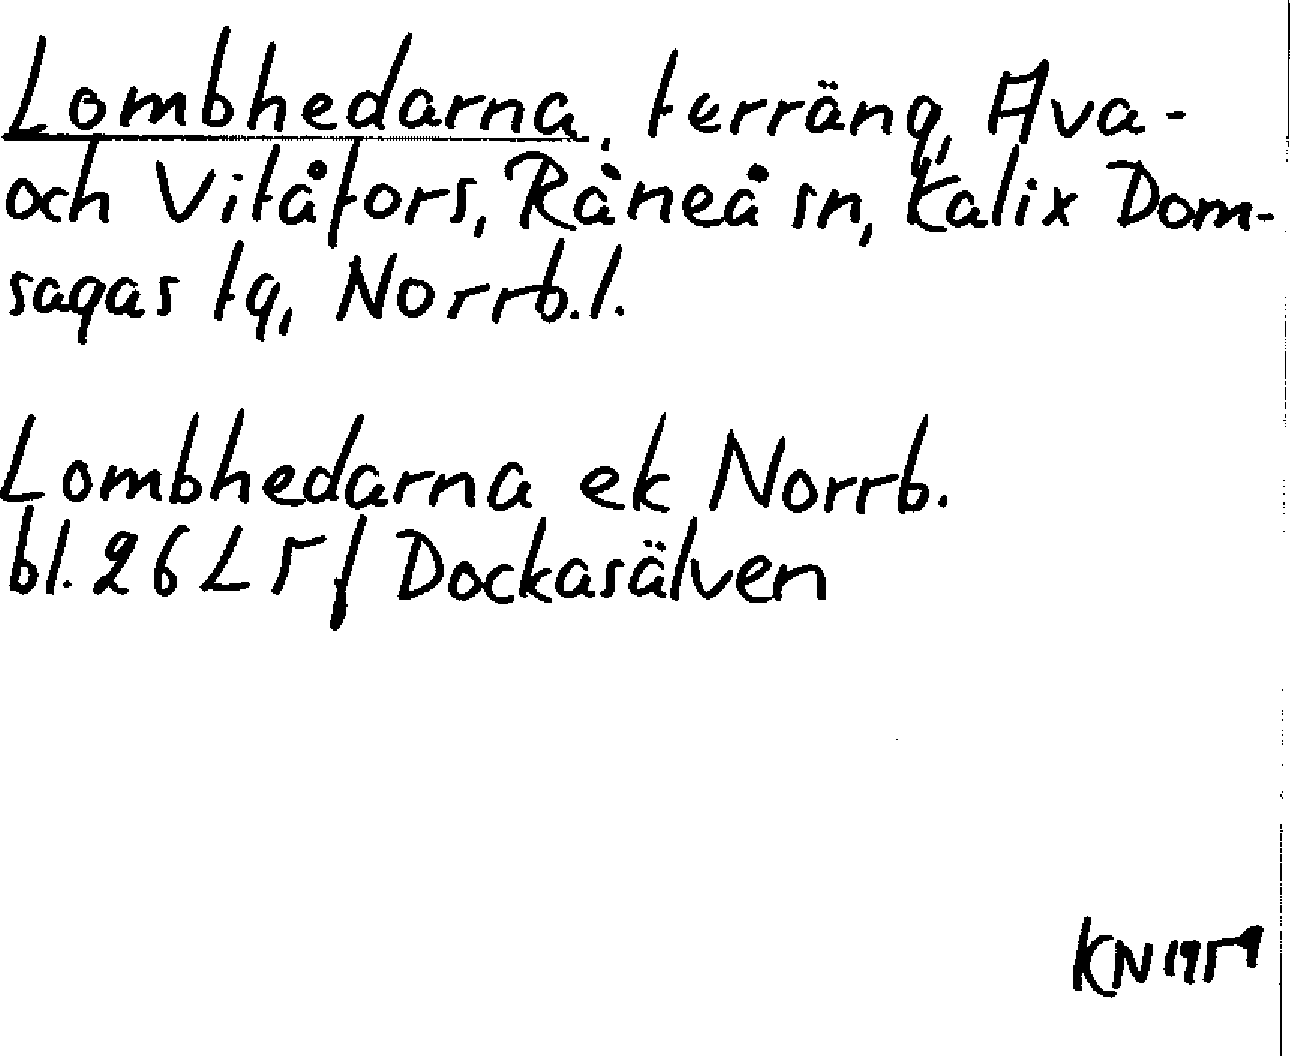 Lombhedarna, terräng, Ava-
och Vitåfors, Råneå sn, Kalix Dom-
sagas tg, Norrb.l.
Lombhedarna ek Norrb.
bl. 26 L 5 f Dockasälven
KN 1959